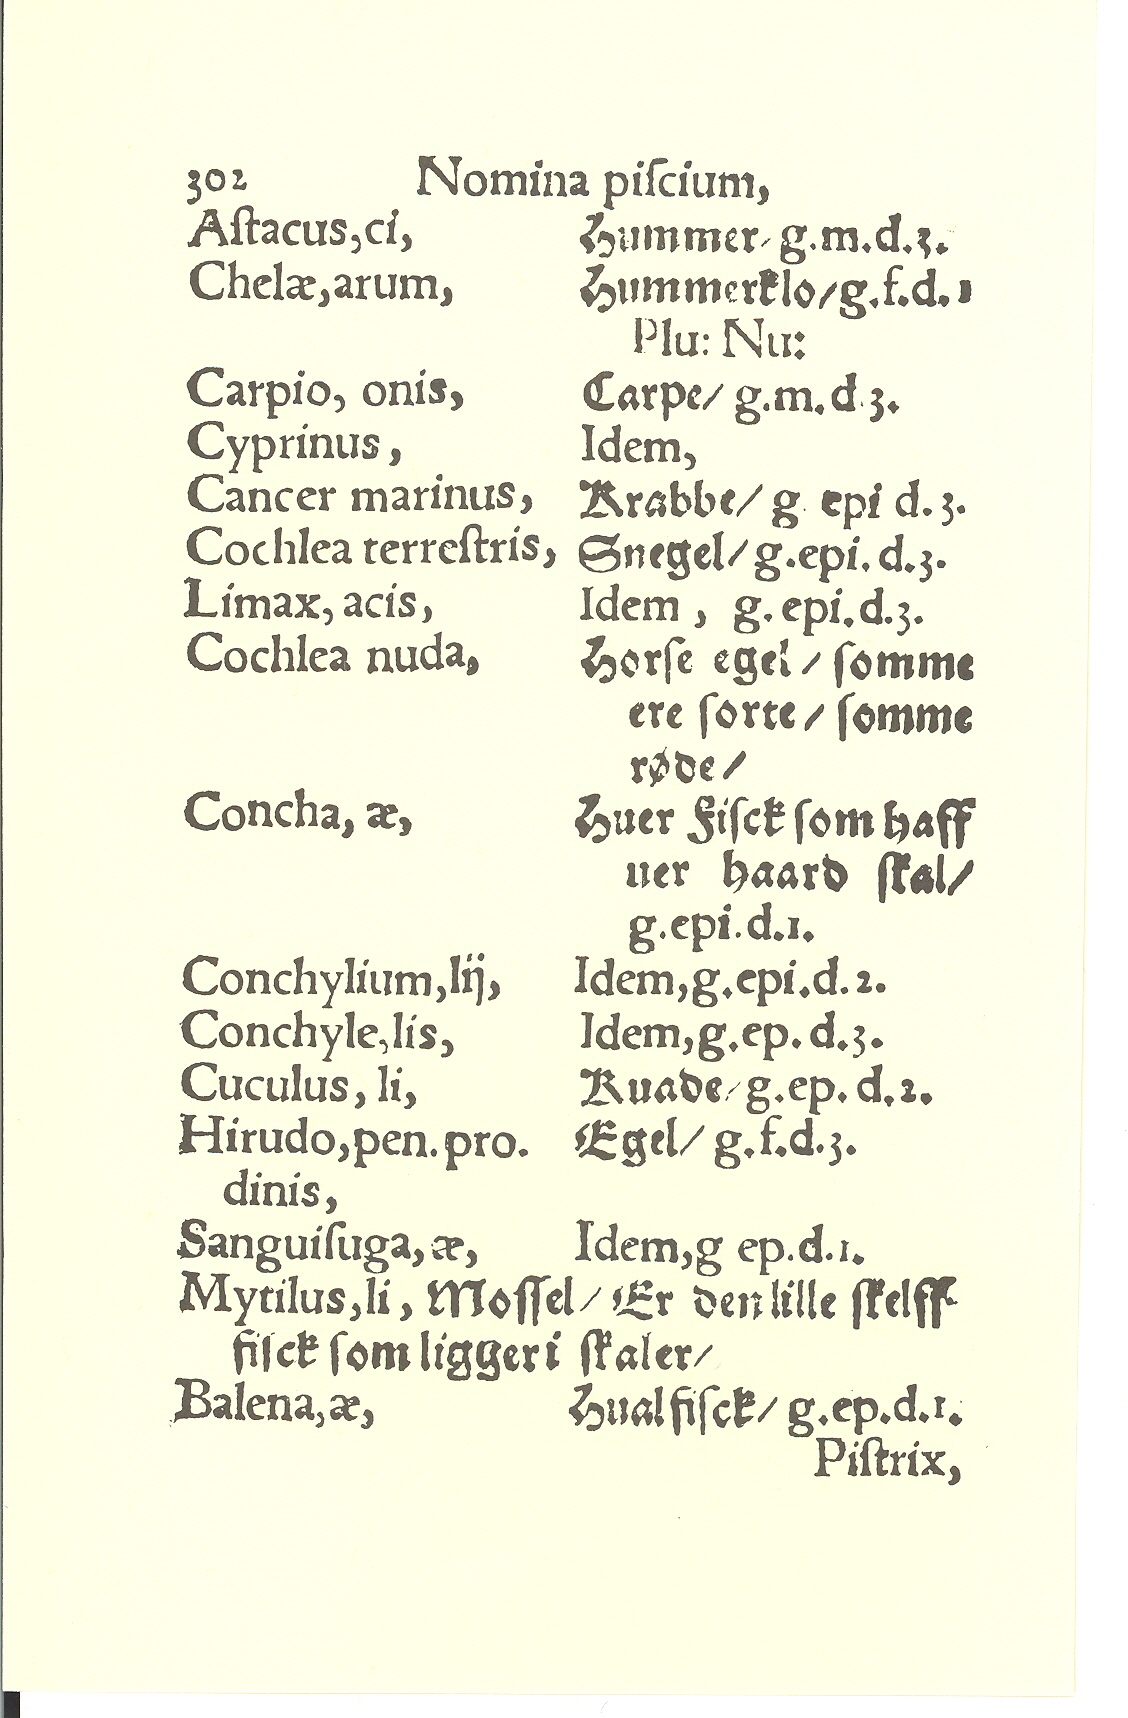 302 Nomina piſcium,
Aſtacus,ci, Hummer/ g.m.d.3.
Chelæ,arum, Hummerklo/g.f.d.1
Plu: Nu:
Carpio, onis, Carpe/ g.m.d.3.
Cyprinus, Idem,
Cancer marinus, Krabbe/ g epi d.3.
Cochlea terreſtris, Snegel/ g.epi.d.3.
Limax, acis, Idem, g. epi.d.3.
Cochlea nuda, Horſe egel/ ſomme
ere ſorte/ ſomme
røde/
Concha, æ, Huer Fiſck ſom haff
uer haard ſkal/
g.epi.d.1.
Conchylium,lij, Idem,g.epi.d.2.
Conchyle,lis, Idem,g.ep.d.3.
Cuculus, li, Knade/ g.ep.d.2.
Hirudo,pen.pro. Egel/ g.f.d.3.
dinis,
Sanguiſuga,æ, Idem,g ep.d.1.
Mytilus,li, Moſſel/ Er den lille ſkelff-
fiſck ſom ligger i ſkaler/
Balena,æ, Hualfiſck/ g.ep.d.1.
Piſtrix,